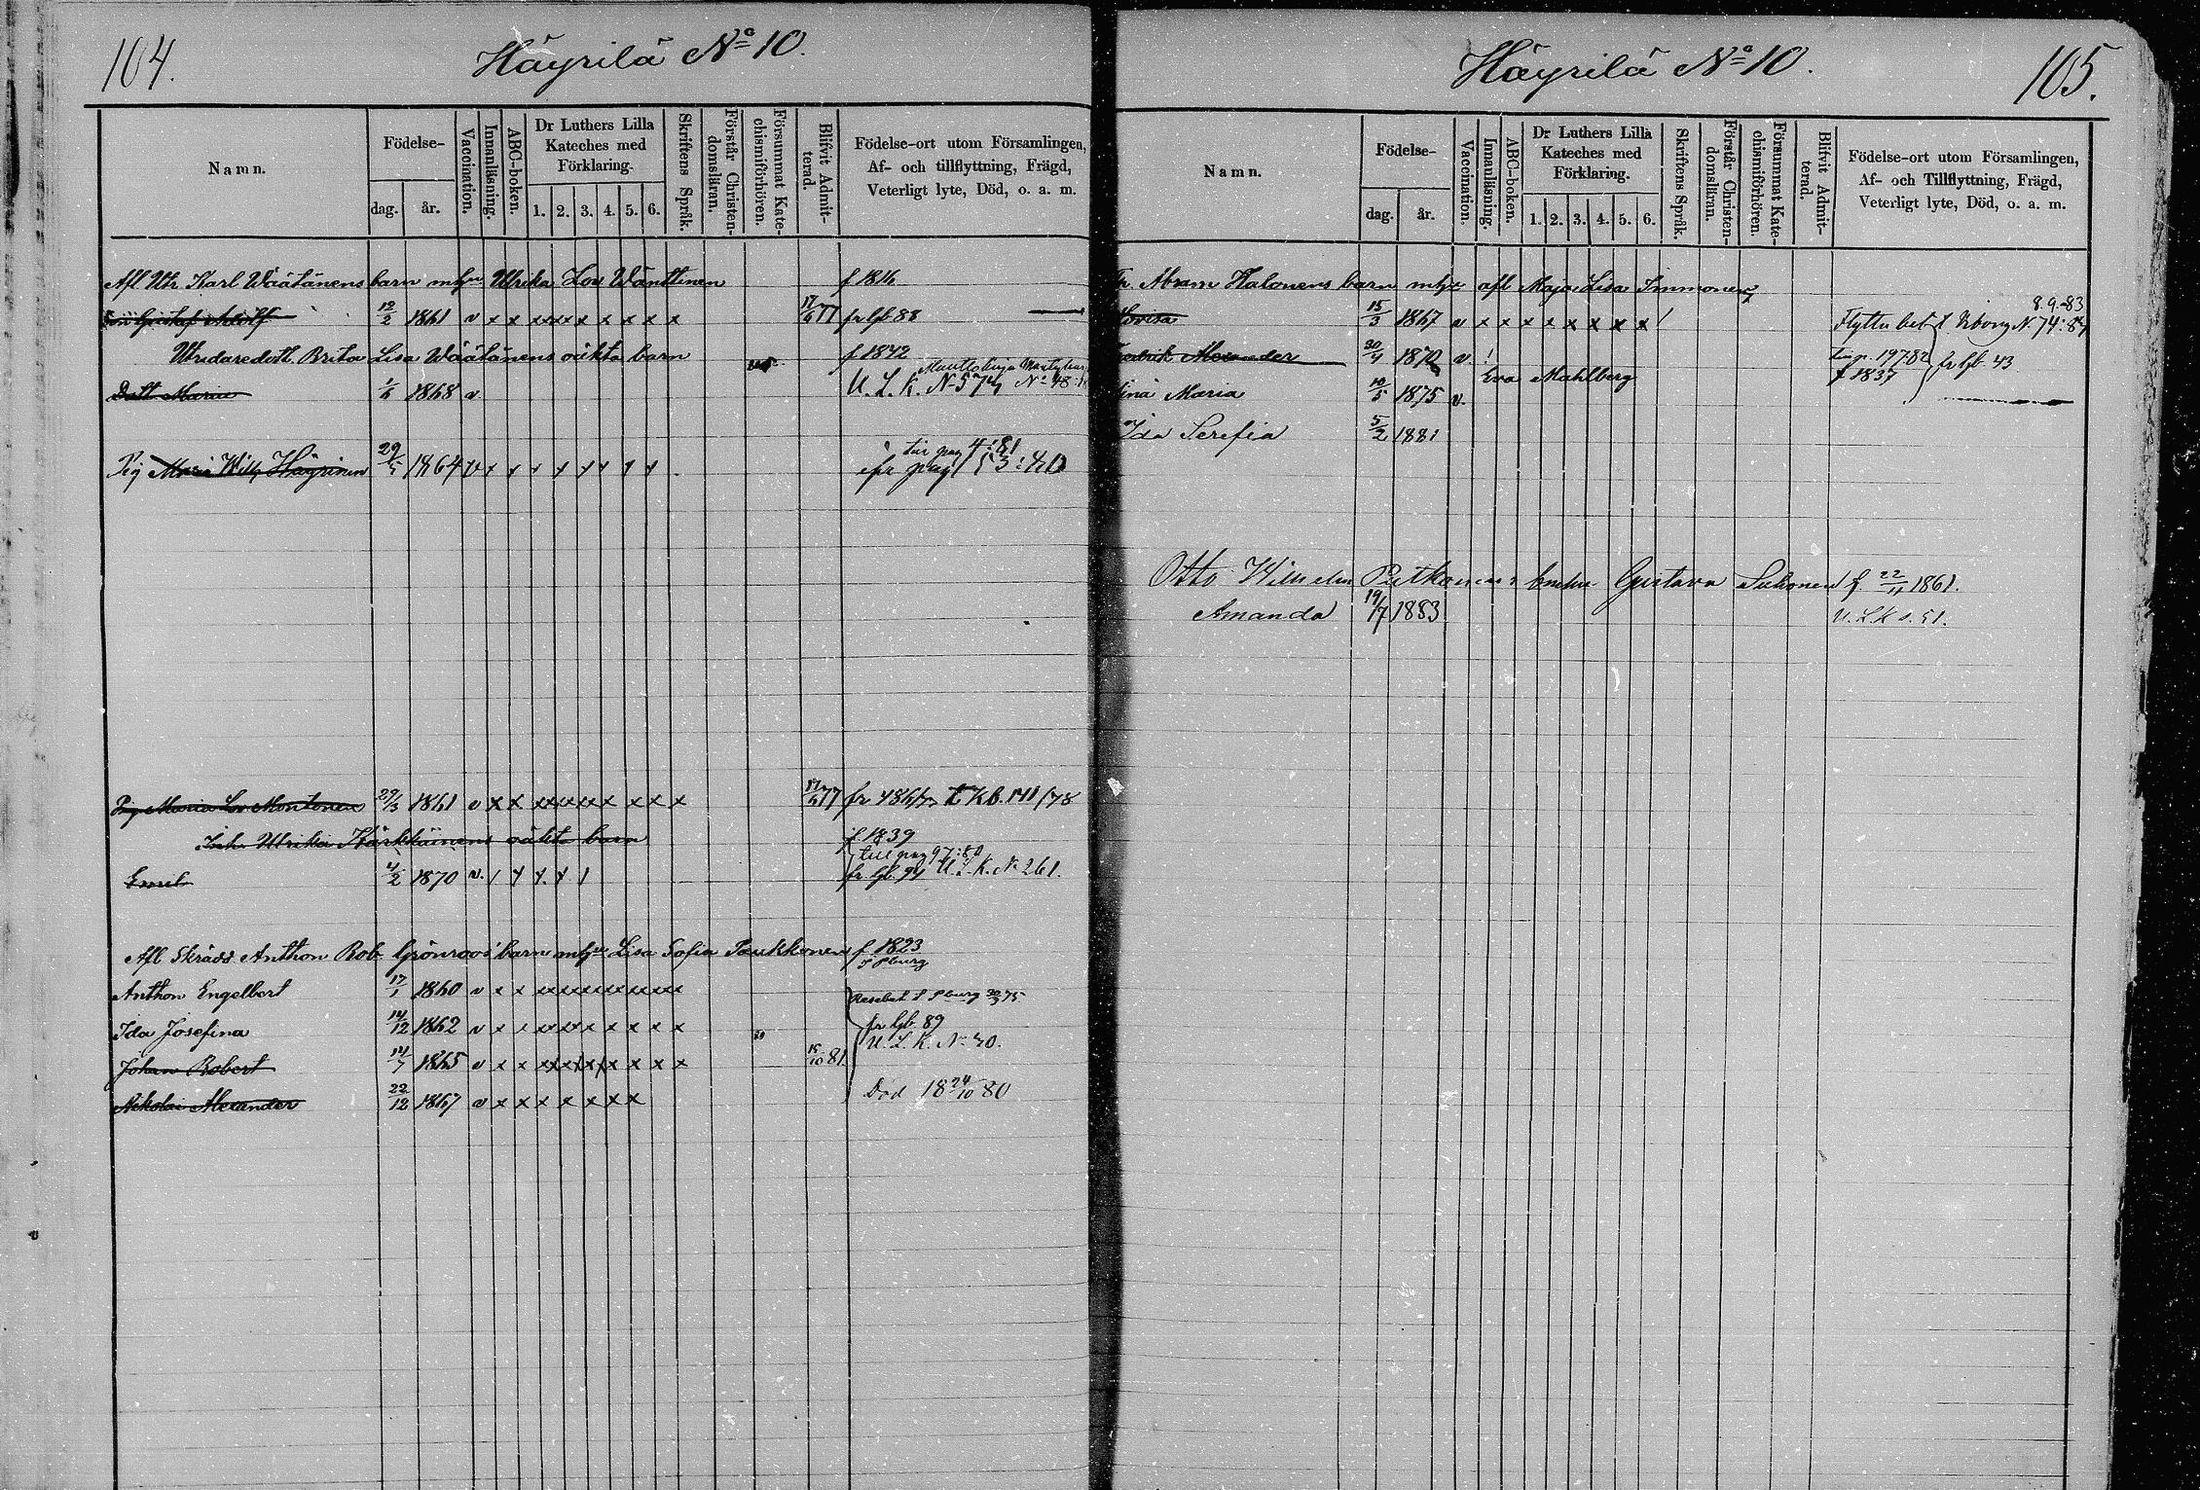 104.
Häyrilä No 10.
Namn.
Födelse-
dag.
år.
Vaccination.
Innanläsning.
ABC-boken.
Dr Luthers Lilla
Kateches med
Förklaring.
1. 2. 3. 4. 5. 6.
Skriftens Språk.
Förstår Christen-
domsläran.
Försummat Kate-
chismiförhören.
Blifvit Admit-
terad.
Födelse-ort utom Församlingen,
Af- och tillflyttning, Frägd,
Veterligt lyte, Död, o. a. m.
Afl Utr. Karl Wäätänens barn m hu Ulrika Lov Wänttinen f 1816
Gustaf Adolf 12/2 1861 v x x x x x x x x x x x 17/6 77 fr lgb 88
Utridaredott. Brita Lisa Wäätänens oäkta barn f 1842
U. L. K. N 574
Dott Maria 1/6 1868 v
till pag 4:81
Pig Maria Wilh Häyrinen 29/5 1864 v x x x x x x x x fr pag 53:40
Pig. Maria Lov Montonen 29/3 1861 v x x x x x x x x x x x 17/6 77 fr 486/77 t Kb. 141/78
Inh. Ulrika Kärkkäinens oäkta barn f. 1839
till pag 97:80
Emil 4/2 1870 v. fr lgb. 94 U. L. K. No 261.
Afl Skrädd. Anthon Rob Grönroos barn m hu Lisa Sofia Paukkonen f 1823
i Pburg
Anthon Engelbert 17/1 1860 v x x x x x x x x x x x Resebet t Pburg 30/3 75
Ida Josefina 14/12 1862 v x x x x x x x x x x fr lgb. 89
U. L. K. No 40.
Johan Robert 14/7 1865 v x x x x x x x x x x x 15/10 81.
Nikolai Alexander 22/12 1867 v x x x x x x x x Död 18 24/10 80
Häyrilä No 10.
105.
Namn.
Födelse-
dag.
år.
Vaccination.
Innanläsning.
ABC-boken.
Dr Luthers Lilla
Kateches med
Förklaring.
1. 2. 3. 4. 5. 6.
Skriftens Språk.
Förstår Christen-
domsläran.
Försummat Kate-
chismiförhören.
Blifvit Admit-
terad.
Födelse-ort utom Församlingen,
Af- och Tillflyttning, Frägd,
Veterligt lyte, Död, o. a. m.
Abram Halonens barn m hu afl Maja Lisa Immonen
8.9.83
Lovisa 15/3 1867 v x x x x x x x x / Flyttn bet t Viborg N. 74:84
Fredrik Alexander 30/4 1870 v ! 197:82 fr lgb. 43
Eva Mahlberg f 1837
Lina Maria 10/5 1875 v.
Ida Serefia 5/2 1881
Otto Wilhelm Putkonens hustru Gustava Suhonen f 22/11 1861.
Amanda 19/7 1883 U. L. K s. 51.